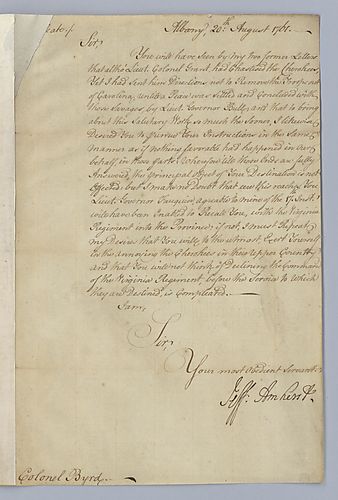 Albany, 20th August 1761.
Sir
You will have seen by My two former Letters
that altho Lieut. Colonel Grant had Chastised the Cherokees
Yet I had sent him Directions not to Remove the Troops out
of Carolina, untill a Peace was Settled and Concluded with
those Savages by Lieut. Governor Bull; and that to bring
about this Salutary Work so much the sooner, I likewise
Desired You to pursue Your Instructions in the Same
Manner as if nothing favorable had happened in Our
behalf, in those parts: Whenfore till those Ends are fully
Answered, the principal Object of Your Destination is not
Effected; but I make no Doubt that ere this reaches You
Lieut. Governor Fauquier, agreable to mine of the Inst.
will have been Enabled to Recall You, with the Virginia
Regiment into the Province; if not, I must Repeat
my Desires that You will, to the utmost, Exert Yourself
in the Annoying the Cherokees in their Upper Country
and that You will not think of Declining the Command
of the Virginia Regiment before the Service to Which
they are Destined, is Compleated.
I am,
Sir,
Your most Obedient Servant
Jeff: Amherst
Colonel Byrd.